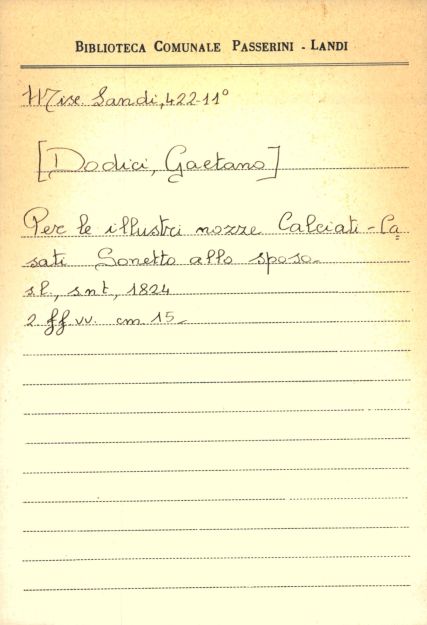 BIBLIOTECA COMUNALE PASSERINI - LANDI
Misc. Landi, 422-11°
[Dodici, Gaetano]
Per le illustri nozze Calciati - Ca=
sati Sonetto allo sposo.
s.l., s.n.t., 1824
2 ff. vv. cm 15.